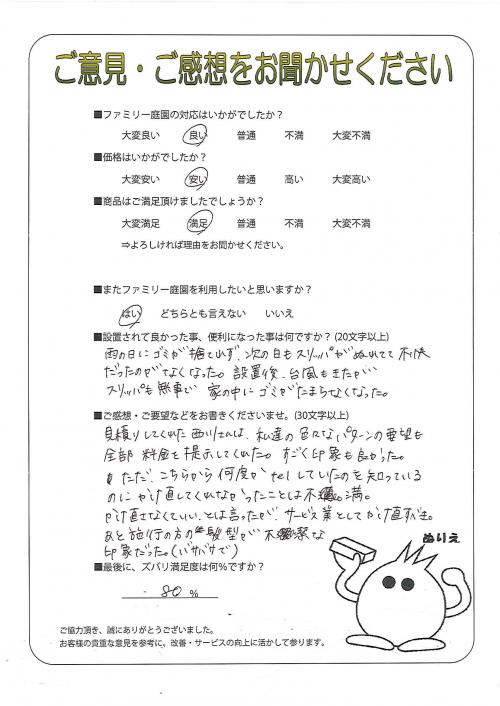 ご意見・ご感想をお聞かせください
■ファミリー庭園の対応はいかがでしたか？
大変良い 良い 普通 不満 大変不満
■価格はいかがでしたか？
大変安い 安い 普通 高い 大変高い
■商品はご満足頂けましたでしょうか？
大変満足 満足 普通 不満 大変不満
⇒よろしければ理由をお聞かせください。
■またファミリー庭園を利用したいと思いますか？
はい どちらとも言えない いいえ
■設置されて良かった事、便利になった事は何ですか？(20文字以上)
雨の日にゴミが捨てれず、次の日もスリッパがぬれてて不快
だったのがなくなった。設置後、台風もきたが
スリッパも無事で家の中にゴミがたまらなくなった。
■ご感想・ご要望などをお書きくださいませ。(30文字以上)
見積りしてくれた西川さんは、私達の色々なパターンの要望も
全部料金を提示してくれた。すごく印象も良かった。
ただ、こちらから何度かtelしていたのを知っている
のにかけ直してくれなかったことは不満。
かけ直さなくていい、とは言ったが、サービス業としてかけ直すべき。
あと施行の方の髪型が不潔な
印象だった。(バサバサで)
■最後に、ズバリ満足度は何％ですか？
80 %
ぬりえ
ご協力頂き、誠にありがとうございました。
お客様の貴重な意見を参考に、改善・サービスの向上に活かして参ります。